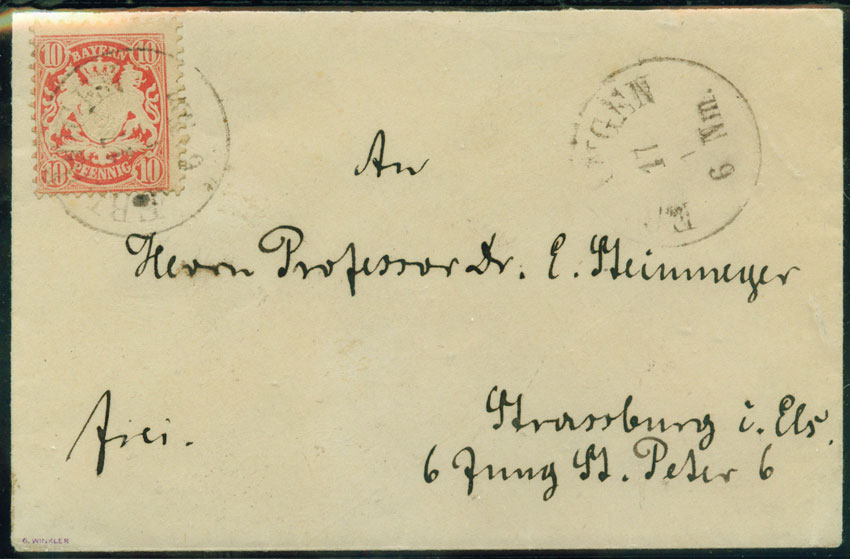 10 BAYERN 10
10 PFENNIG 10
17
9 Nm.
An
Herrn Professor Dr. E. Steinmeyer
frei.
Strassburg i. Els.
6 Jung St. Peter 6
G. WINKLER